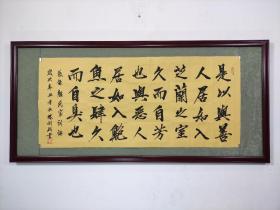 是以與善
人居如入
芝蘭之室
久而自芳
也與惡人
居如入鮑
魚之肆久
而自臭也
顏氏家訓